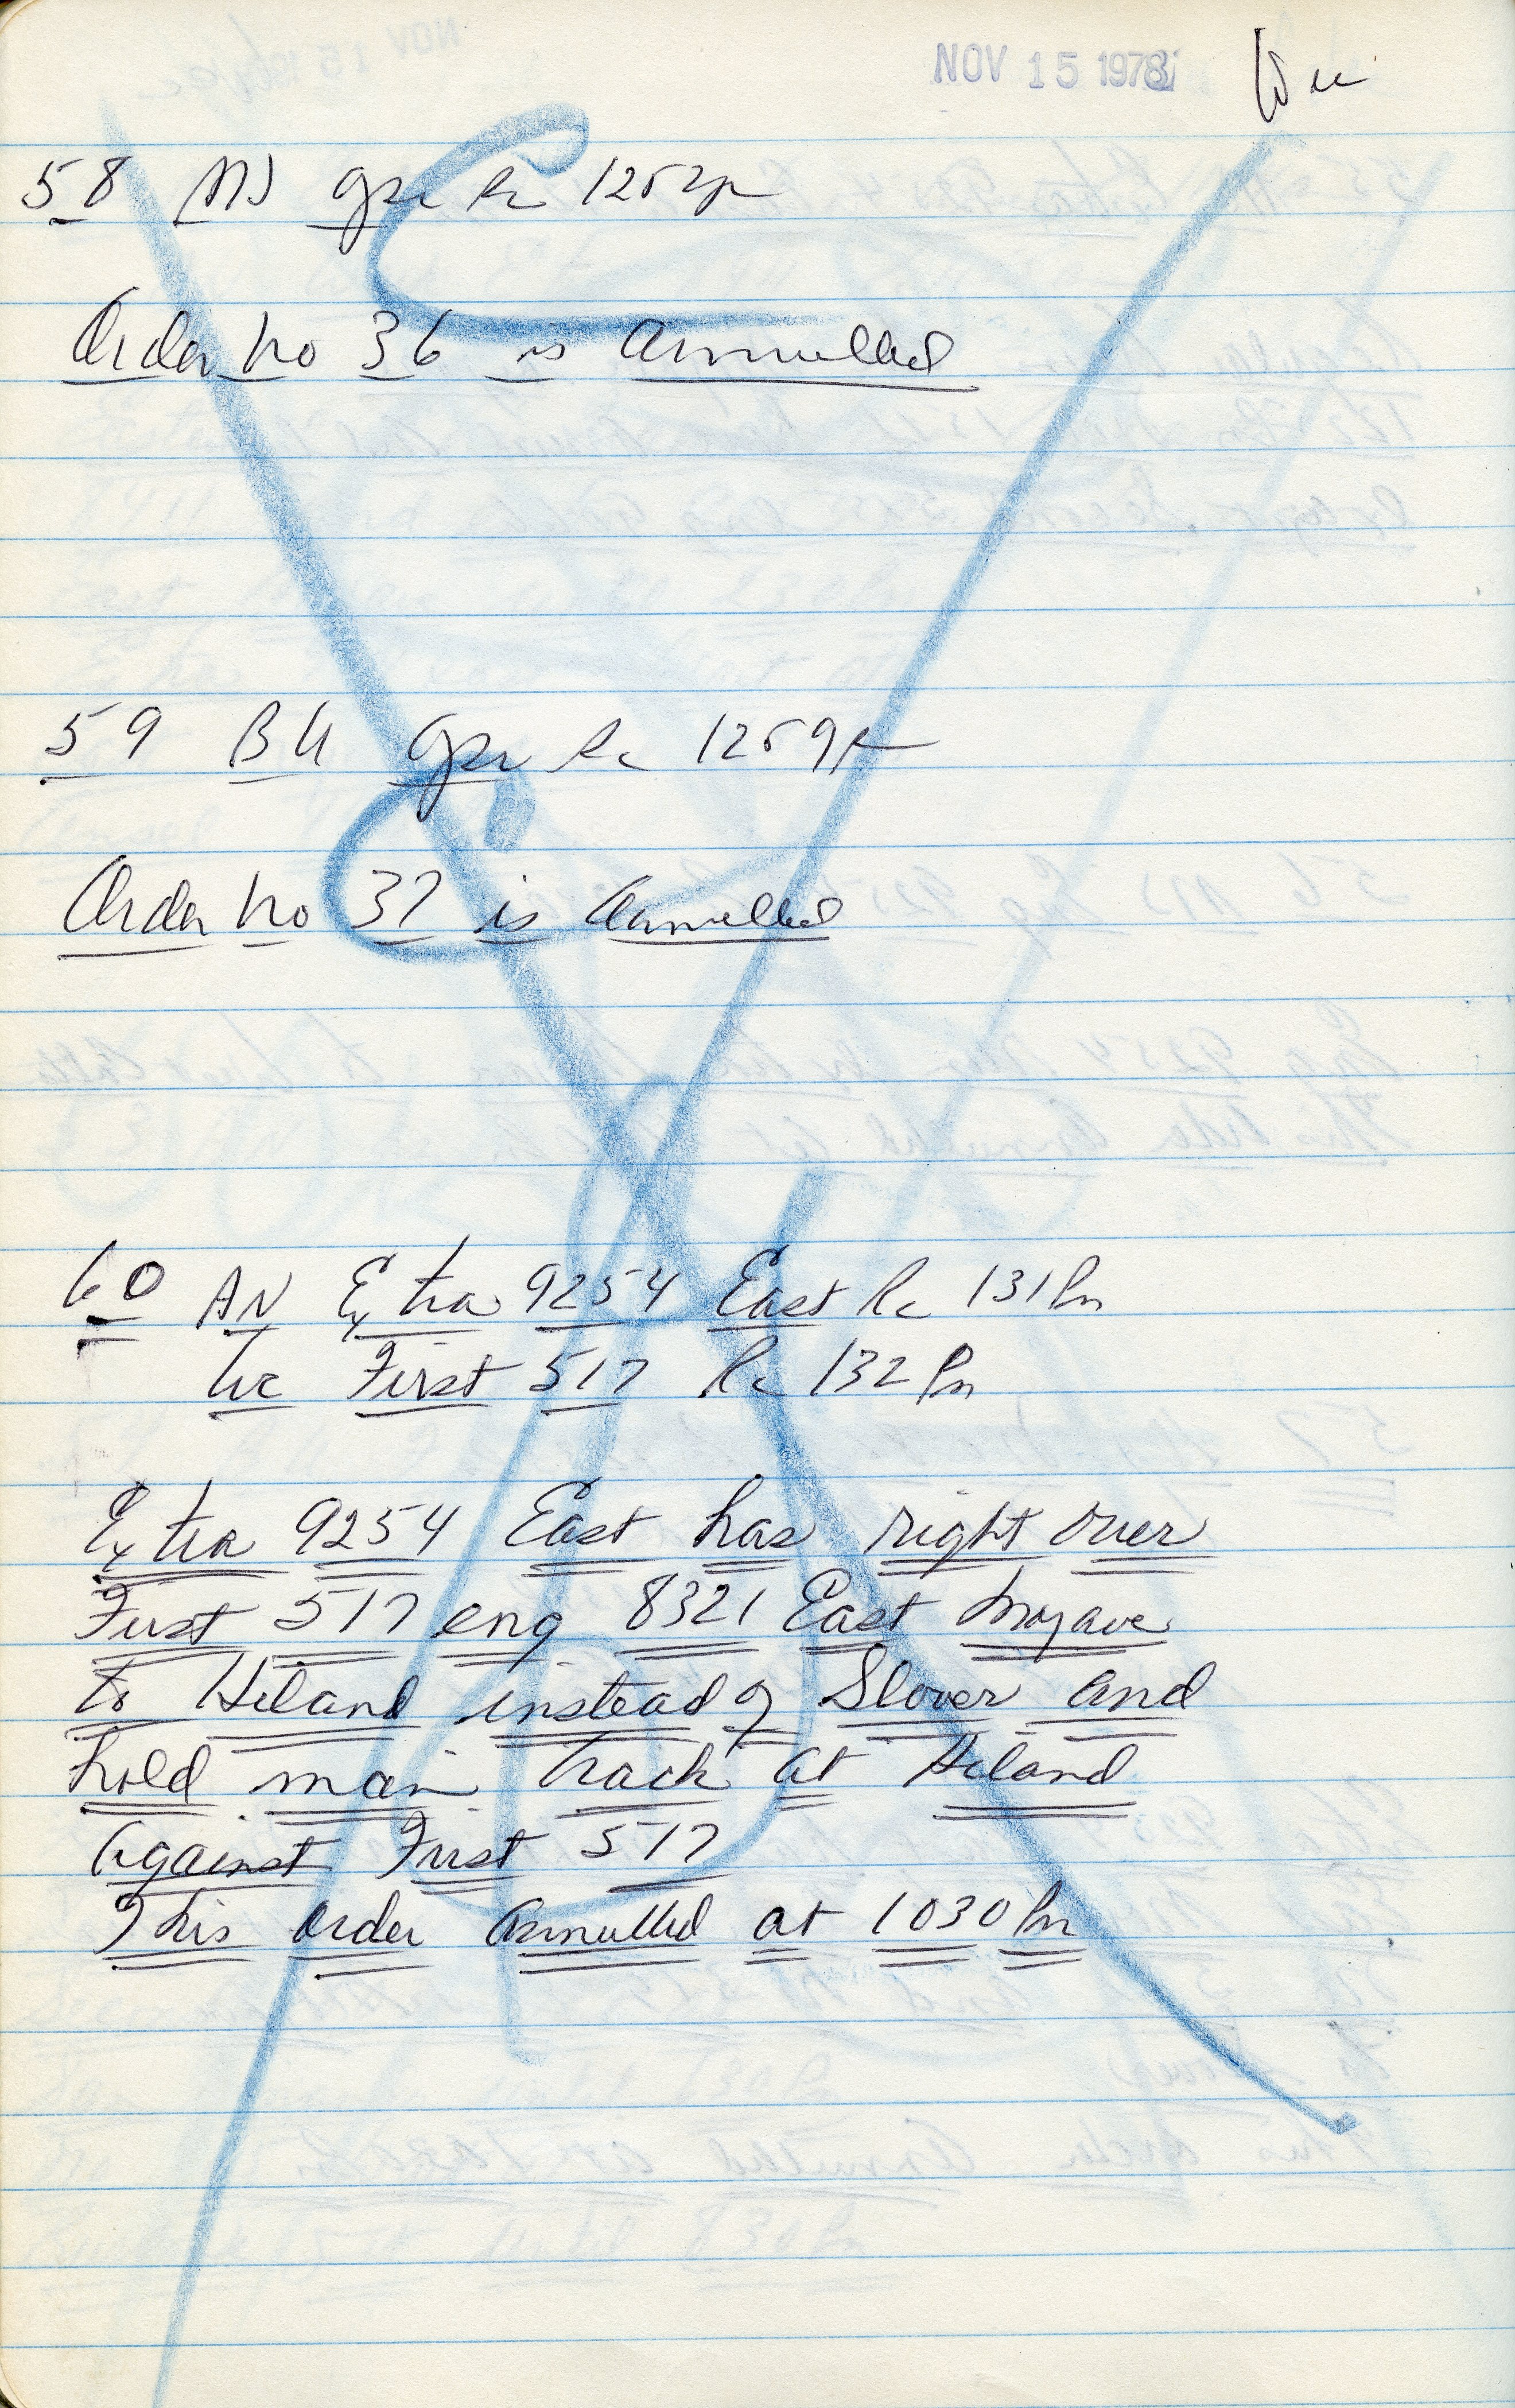 NOV 15 1978
58 opr Rc 1252pm
Order no 36 is annulled
59 BU opr Rc 1259pm
Order no 37 is annulled
60 AN Extra 9254 East Rc 131Pm
First 517 Rc 132Pm
Extra 9254 East has right over
First 517 eng 8321 East Mojave
to Hiland instead of Slover and
hold main track at Hiland
against First 517
This order annulled at 1030Pm